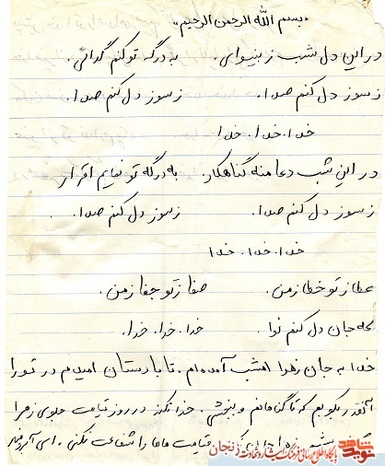 «بسم الله الرحمن الرحیم»
در این دل شب ز بینوایی. به درگه تو کنم گدائی.
ز سوز دل کنم صدا. ز سوز دل کنم صدا.
خدا. خدا. خدا
در این شب دعا منه گناهکار. به درگه تو نمایم اقرار
ز سوز دل کنم صدا. ز سوز دل کنم صدا.
خدا. خدا. خدا
عطا ز تو خطا ز من. صفا ز تو جفا ز من.
به جان دل کنم نوا. خدا. خدا. خدا.
خدا به جان زهرا امشب آمده‌ام. تا بارستان امیدم در تو را
آنقدر بگویم که تا گناهانم و ببخشی. خدا نکند در روز قیامت جلوی زهرا
قیامت ماها را شفاعت نکنی.
شاهد
نوید
پایگاه اطلاع رسانی فرهنگ ایثار و شهادت زنجان